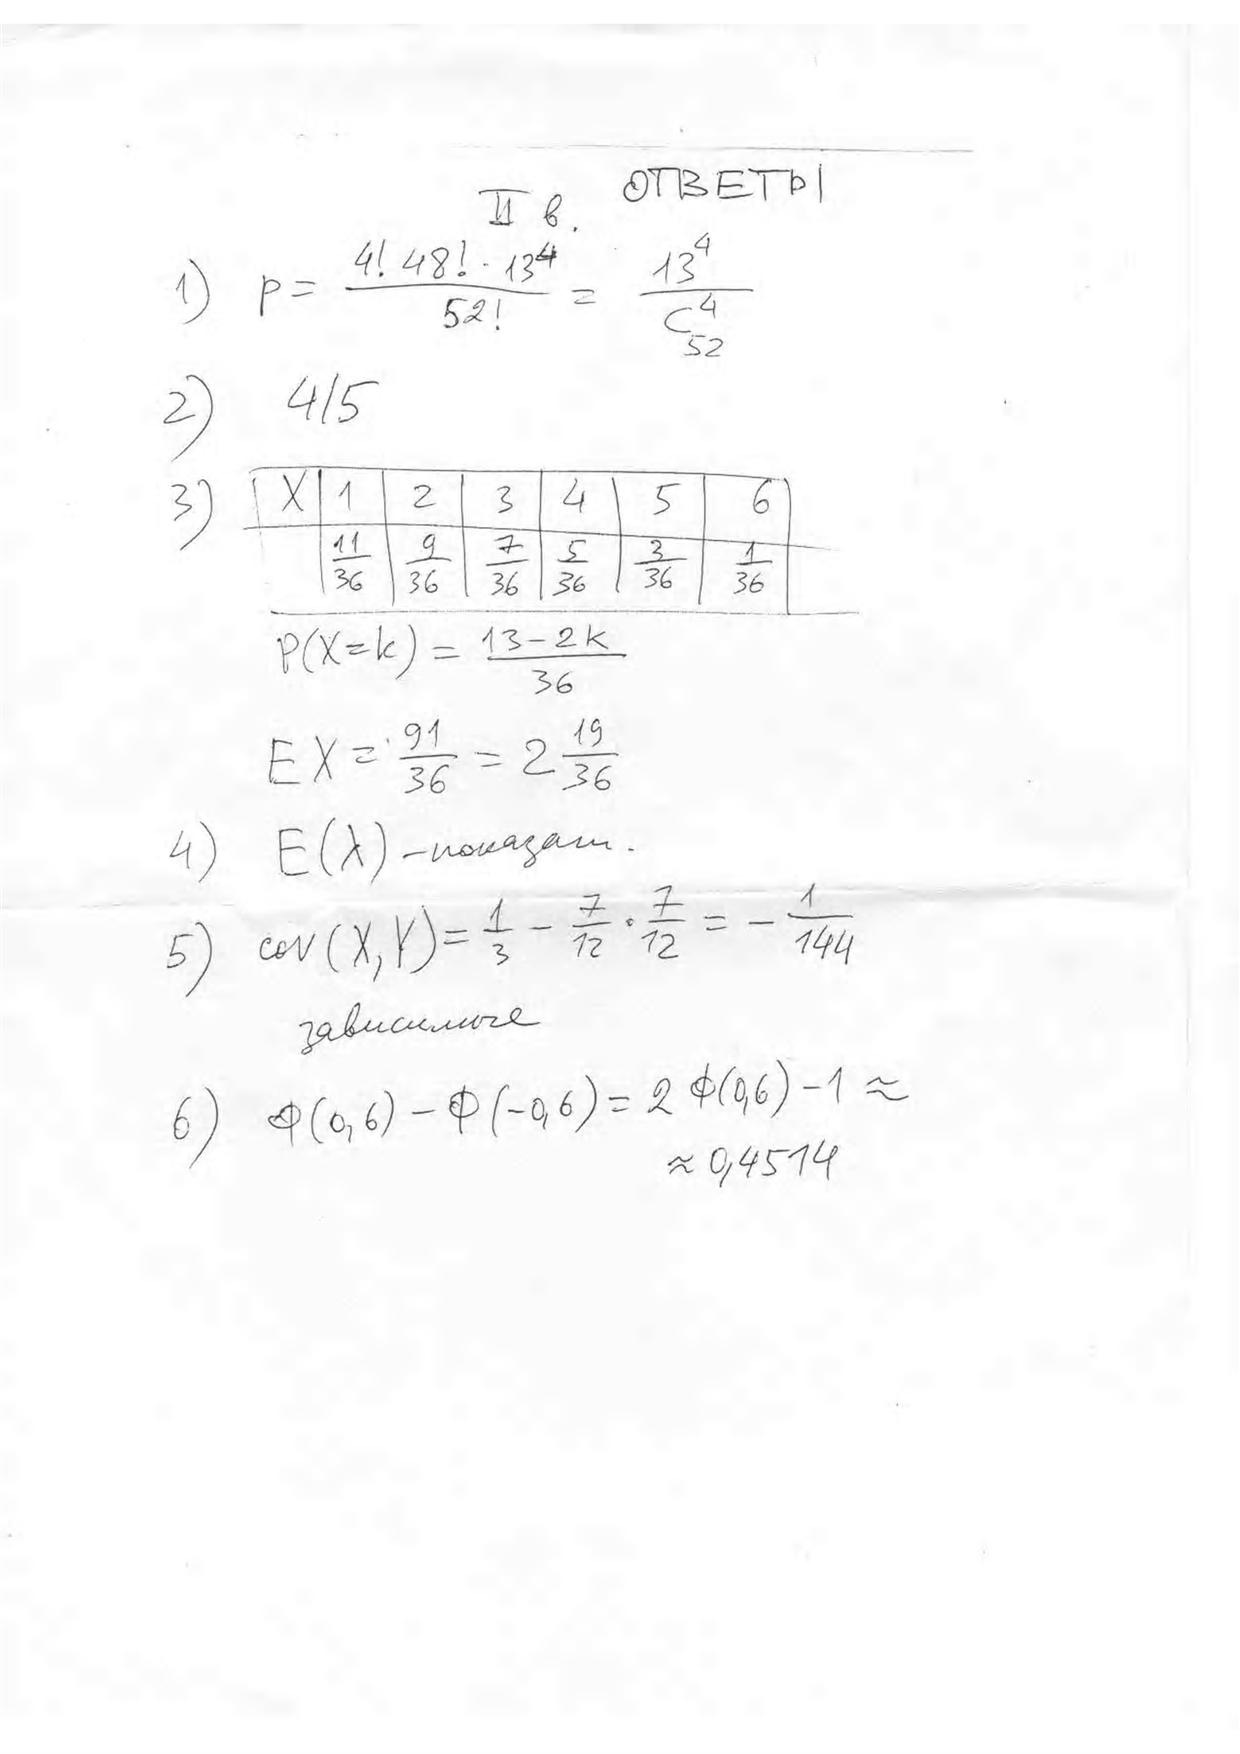 ОТВЕТЫ
II в.
1) p = \frac{4! 48! · 13^4}{52!} = \frac{13^4}{C_{52}^4}
2) 4/5
3) X | 1 | 2 | 3 | 4 | 5 | 6
\frac{11}{36} | \frac{9}{36} | \frac{7}{36} | \frac{5}{36} | \frac{3}{36} | \frac{1}{36}
P(X=k) = \frac{13-2k}{36}
EX = \frac{91}{36} = 2\frac{19}{36}
4) E(λ) - показат.
5) cov(X,Y) = \frac{1}{3} - \frac{7}{12} · \frac{7}{12} = -\frac{1}{144}
зависимые
6) Ф(0,6) - Ф(-0,6) = 2 Ф(0,6) - 1 ≈
≈ 0,4514